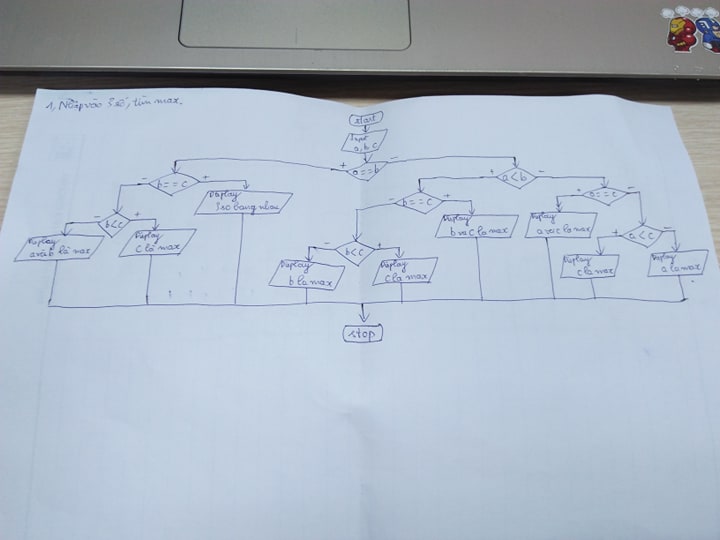 1, Nhập vào 3 số, tìm max.
start
Input
a, b, c
+ a==b -
- b==c +
+ a<b -
Display
3 so bang nhau
- b==c +
+ a==c -
- b<c +
Display
a và b là max
Display
c là max
Display
b va c la max
Display
a va c la max
+ a<c -
- b<c +
Display
b la max
Display
c la max
Display
c la max
Display
a la max
stop